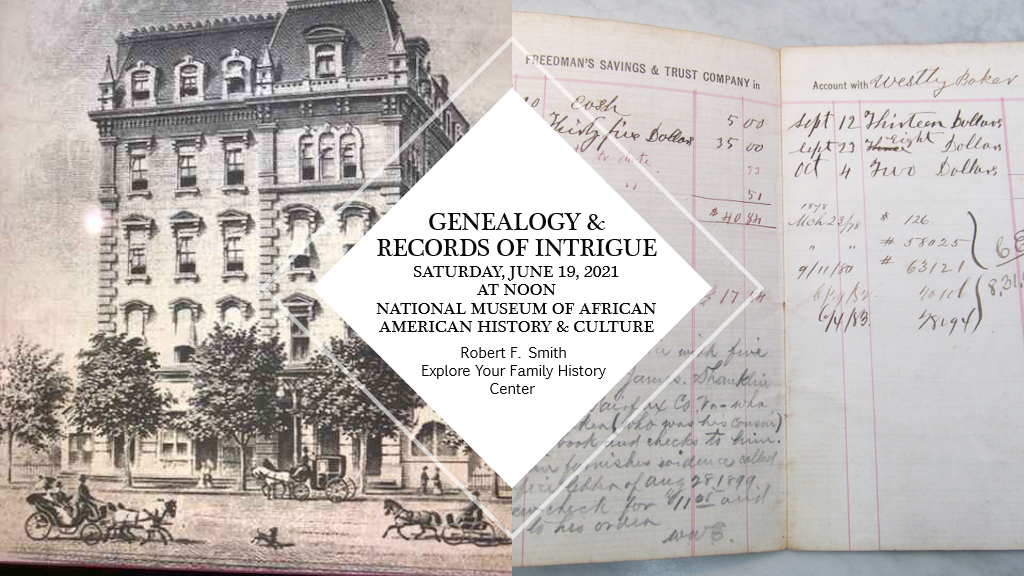 GENEALOGY &
RECORDS OF INTRIGUE
SATURDAY, JUNE 19, 2021
AT NOON
NATIONAL MUSEUM OF AFRICAN
AMERICAN HISTORY & CULTURE
Robert F. Smith
Explore Your Family History
Center
FREEDMAN'S SAVINGS & TRUST COMPANY in
Cash 5 00
Thirty five Dollars 35 00
33
" 51
$ 40 84
with five
James. Shanklin
Fairfax Co. Va - who
who was his cousin)
book and checks to him.
furnishes evidence called
of Aug 28 1899
check for and
to his order
Account with Westly Baker
Sept 12 Thirteen Dollars
Sept 23 Eight Dollars
Oct 4 Two Dollars
1878
Mch 23/78 # 126
" " # 58025
9/11/80 # 63121
6/4/83.